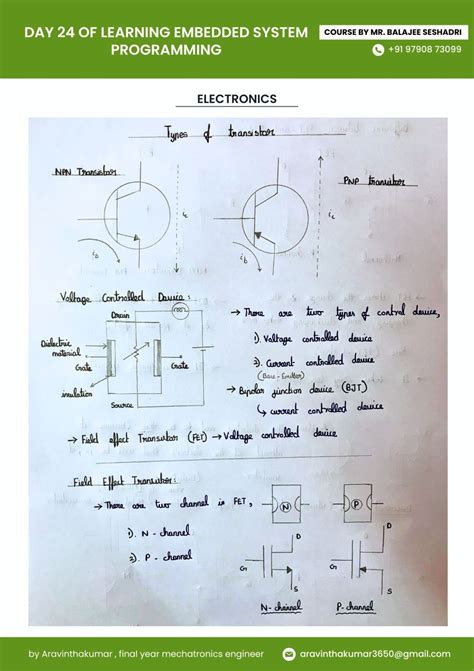 DAY 24 OF LEARNING EMBEDDED SYSTEM
PROGRAMMING
COURSE BY MR. BALAJEE SESHADRI
+91 97908 73099
ELECTRONICS
Types of transistor
NPN Transistor
PNP transistor
ic
ic
ib
ib
Voltage Controlled Device:
Drain
Dielectric
material
Gate
Gate
insulation
Source
→ There are two types of control device,
1). Voltage controlled device
2). Current controlled device
(Base - Emitter)
→ Bipolar junction device (BJT)
↳ current controlled device
→ Field effect Transistor (FET) → Voltage controlled device
Field Effect Transistor:
→ There are two channel in FET,
1). N - channel
2). P - channel
N
P
D
G
S
N - channel
D
G
S
P - channel
by Aravinthakumar , final year mechatronics engineer
aravinthakumar3650@gmail.com